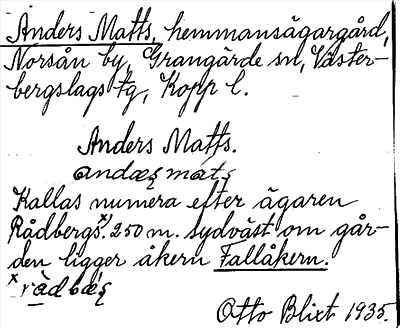 Anders Matts, hemmansägargård,
Norsån by, Grangärde sn, Väster-
bergslags tg, Kopp l.
Anders Matts.
andæʂ mats
Kallas numera efter ägaren
Rådbergs.x) 250 m. sydväst om går-
den ligger åkern Fallåkern.
x rådbæʂ
Otto Blixt 1935.